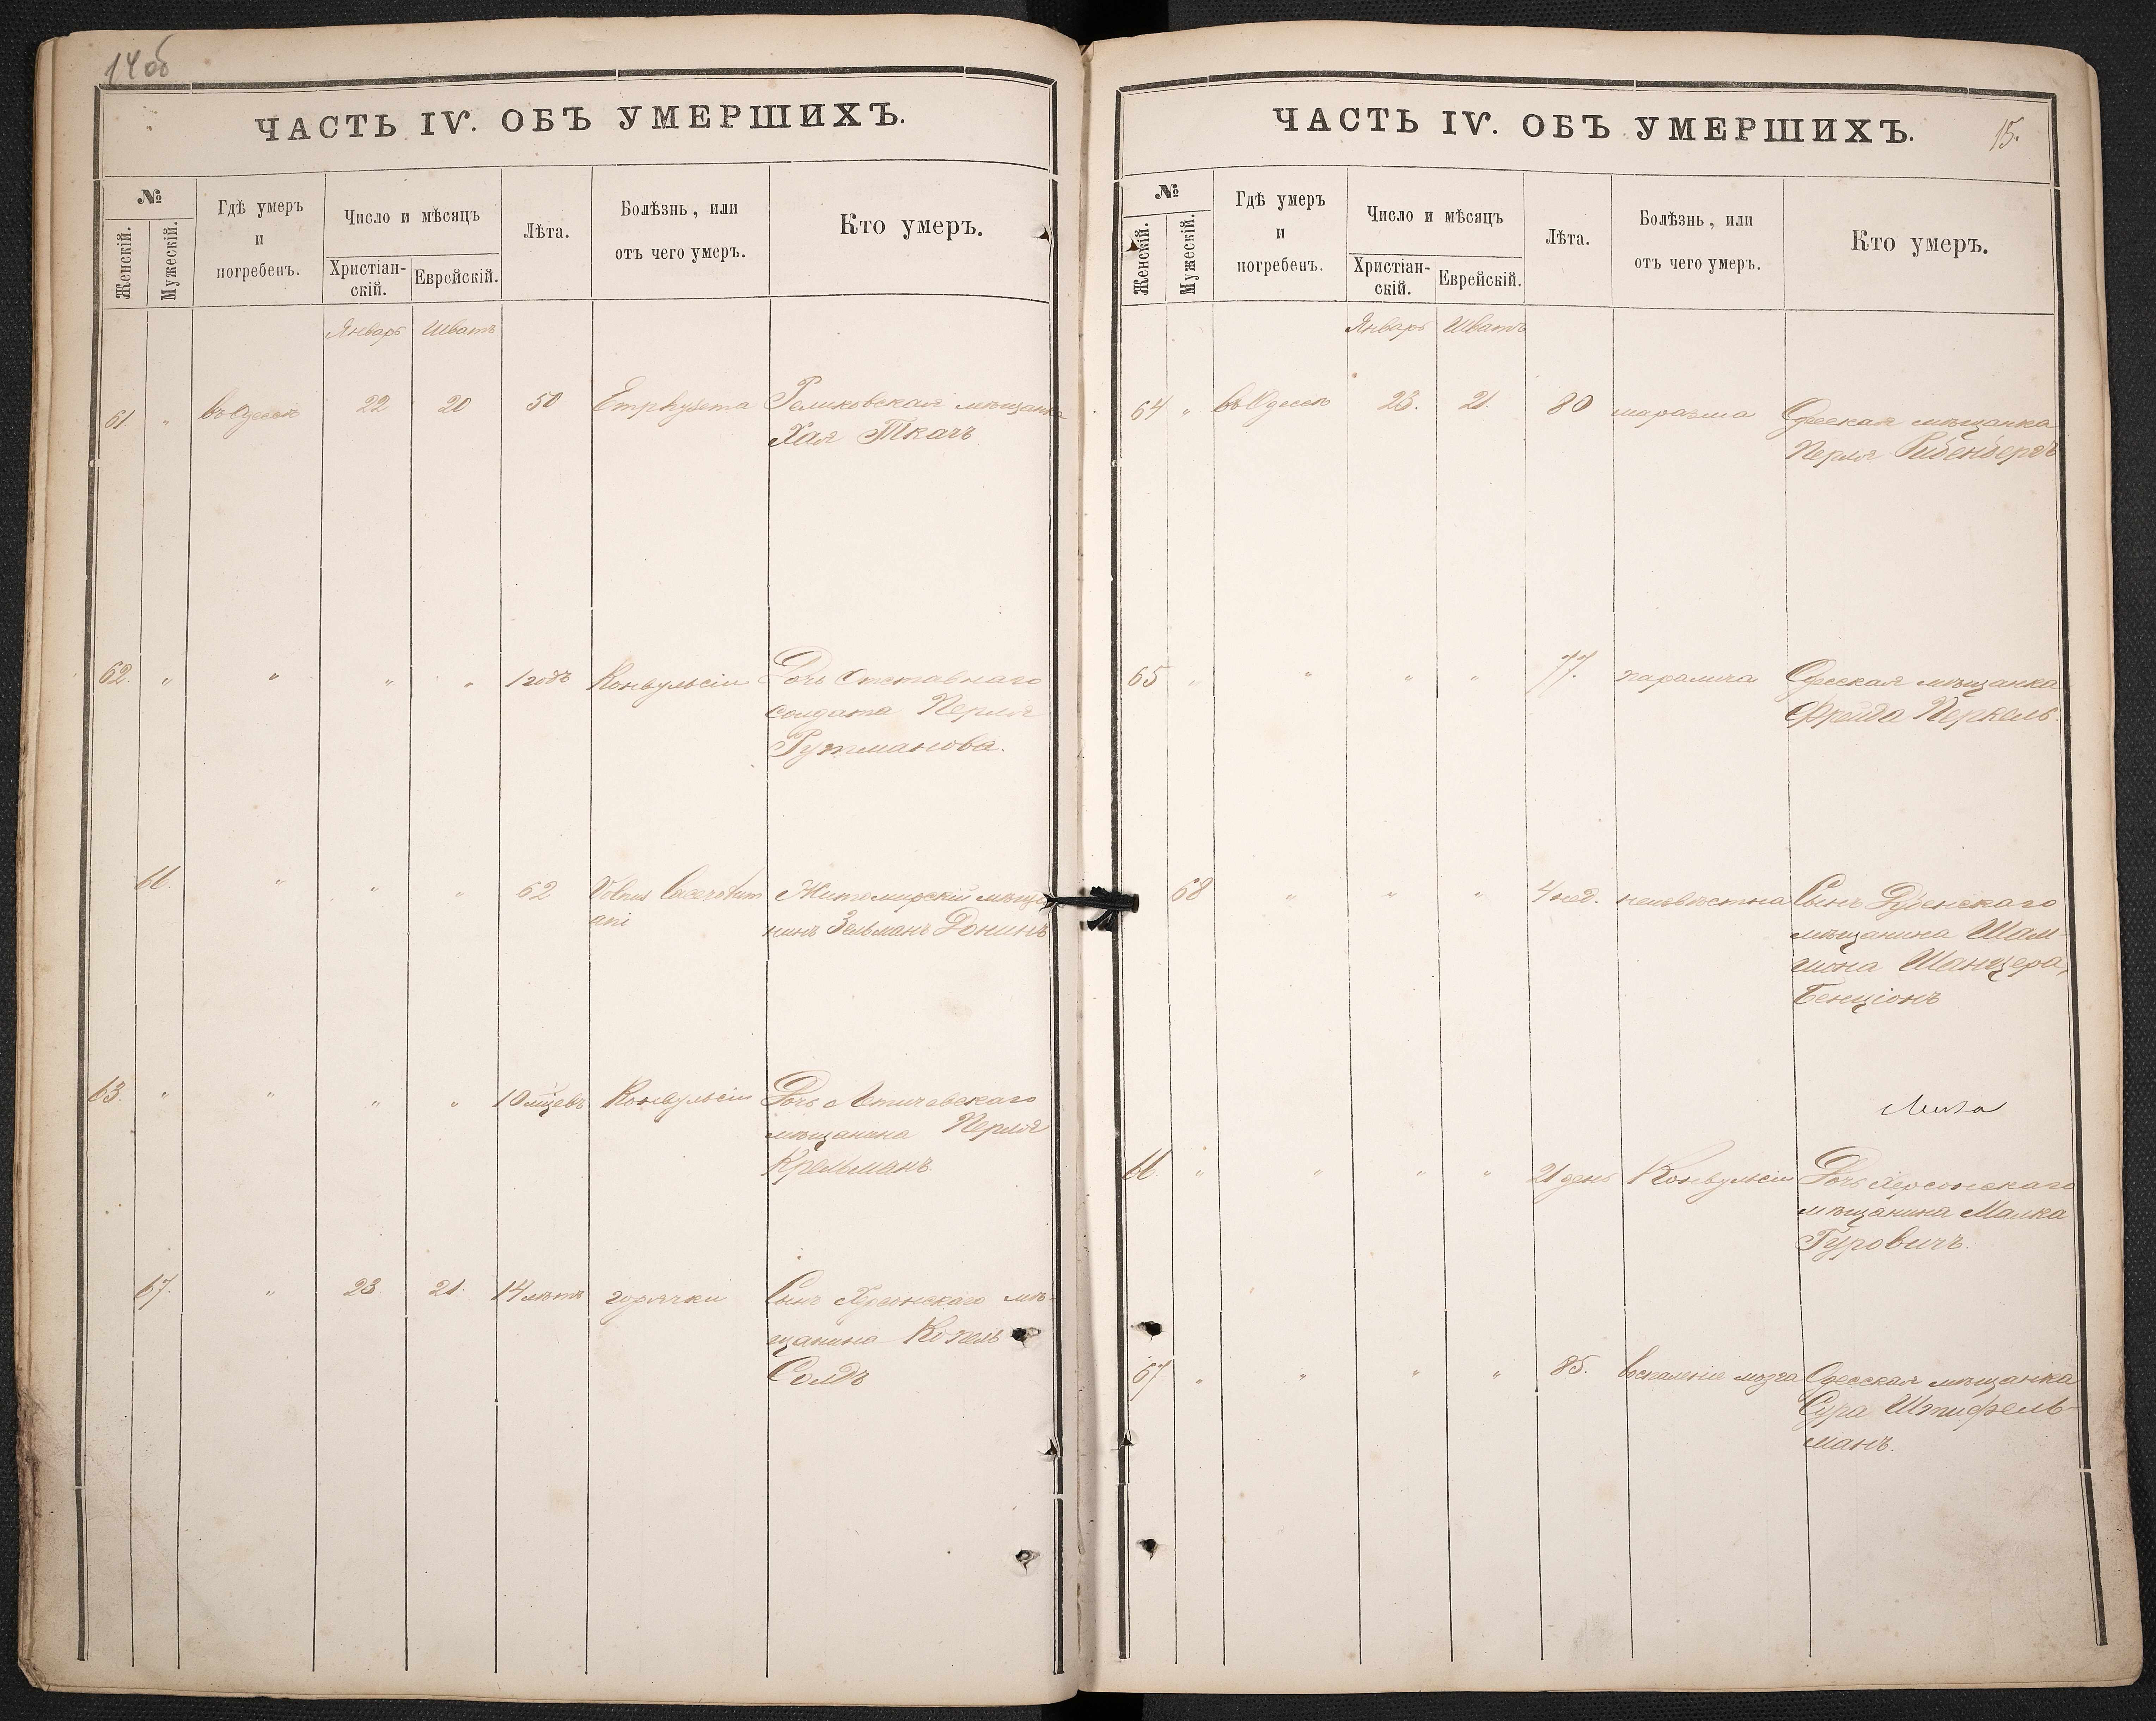 14об
ЧАСТЬ IV. ОБЪ УМЕРШИХЪ.
№
Женскій.
Мужескій.
Гдѣ умеръ
и
погребенъ.
Число и мѣсяцъ
Христіан-
скій.
Еврейскій.
Лѣта.
Болѣзнь, или
отъ чего умеръ.
Кто умеръ.
Январь Шватъ
61 " въ Одессѣ 22 20 50 Emphysema мѣщанка
Хая Ткачъ
62. " " " " 1 годъ Конвульсіи Дочь Отставнаго
солдата Перля
Гутманова.
66. " " " 62 Vulnus laceratum Житомирскій мѣща
ani нинъ Зельманъ Донинъ
63. " " " " 10 мцевъ Конвульсіи Дочь Летичевскаго
мѣщанина Перля
67. " 23. 21. 14 лѣтъ горячки Сынъ Херсонскаго мѣ-
щанина Копель
Солдъ
ЧАСТЬ IV. ОБЪ УМЕРШИХЪ.
15.
№
Женскій.
Мужескій.
Гдѣ умеръ
и
погребенъ.
Число и мѣсяцъ
Христіан-
скій.
Еврейскій.
Лѣта.
Болѣзнь, или
отъ чего умеръ.
Кто умеръ.
Январь Шватъ
64 " въ Одессѣ 23. 21. 80 маразма Одесская мѣщанка
Перля
65 " " " " 77. паралича Одесская мѣщанка
Фрейда Перкель.
68 " " " 4 нед. неизвѣстна Сынъ Дубенскаго
мѣщанина Шам-
шона Шанцера,
Бенціонъ
66 " " " " 21 день Конвульсіи Дочь Херсонскаго
мѣщанина Малка
Гуровичъ.
67 " " " " 85. воспаленіе мозга Одесская мѣщанка
Сура Штифель-
манъ.